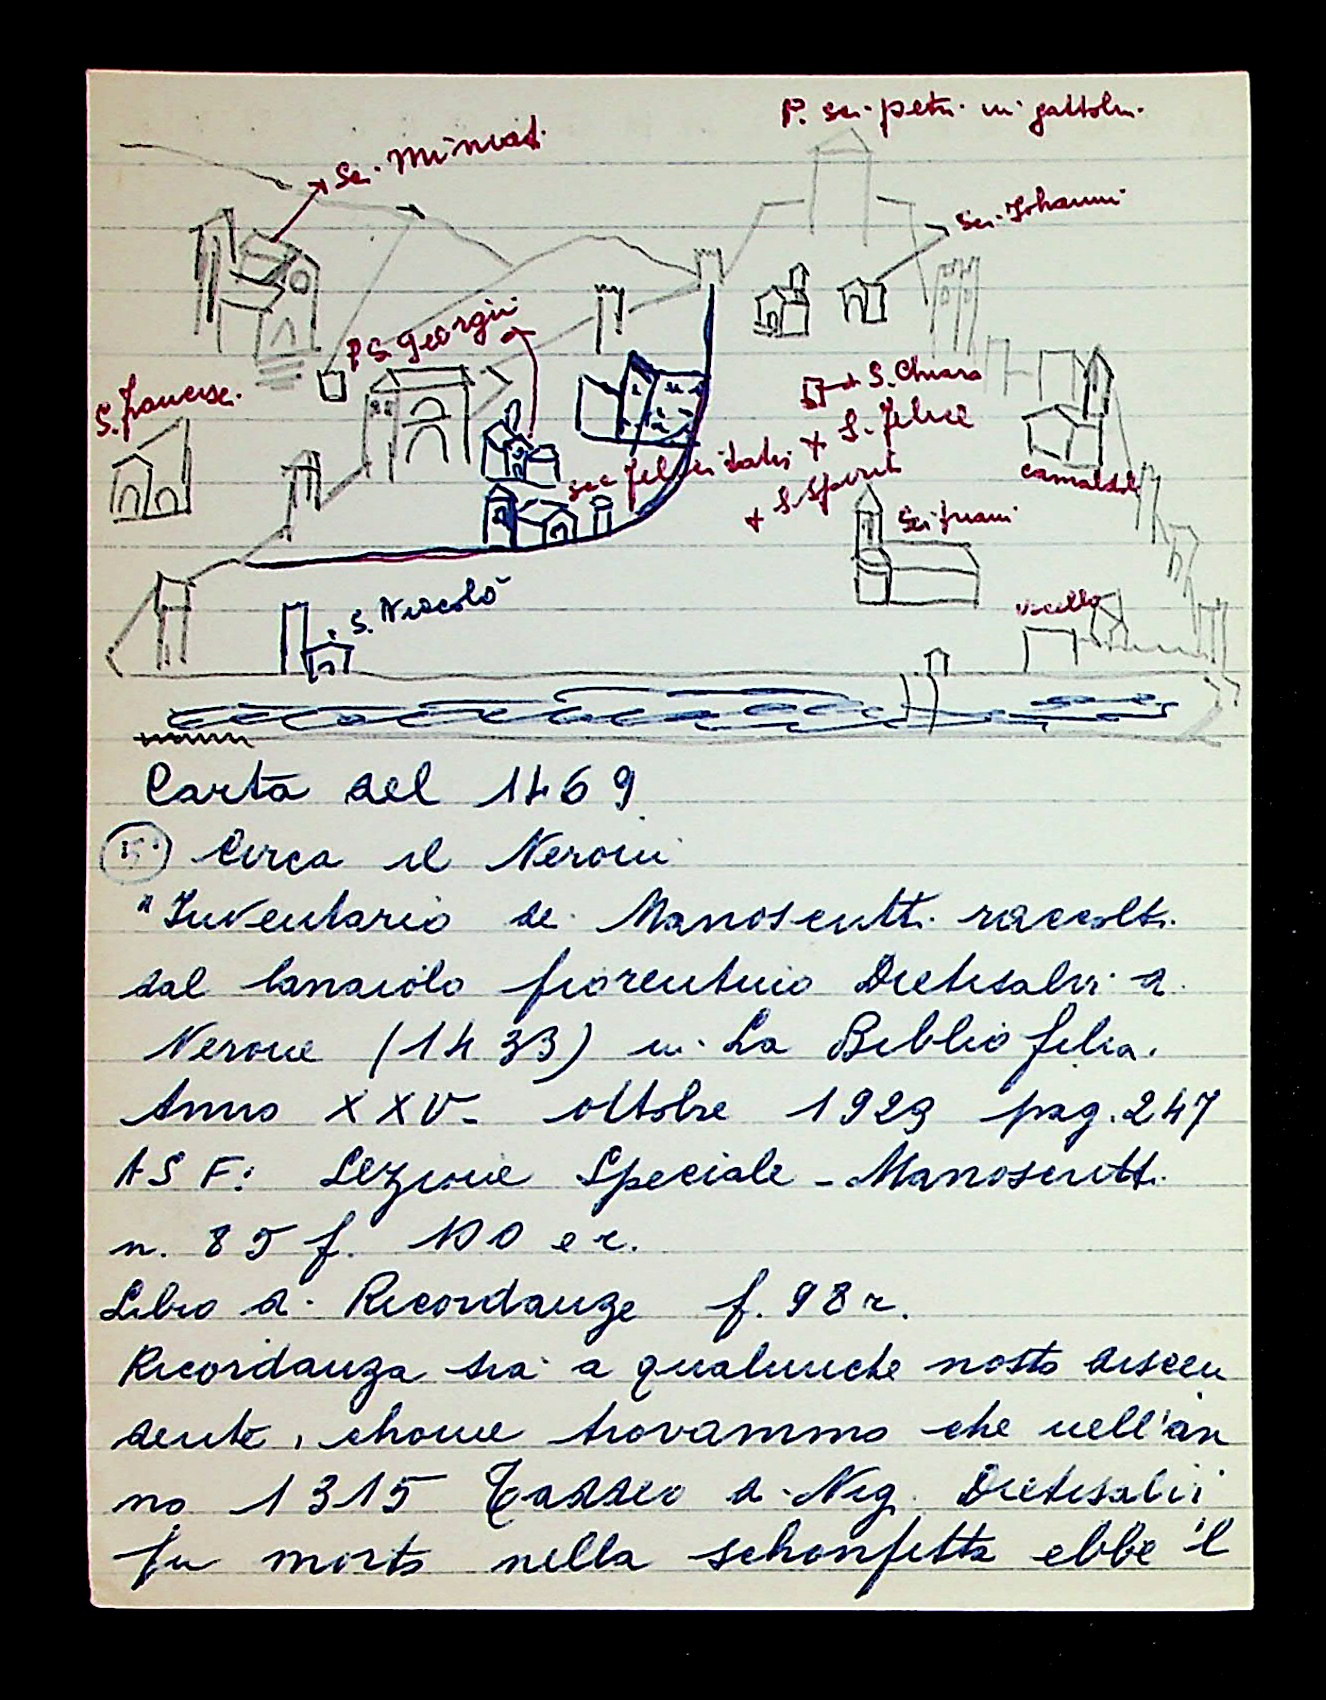 P. sci. petri in gattolin.
Sci. Miniati
Sci. Johanni
P. S. Georgii
S. Chiara
S. francisc.
sce felicitatis + S. felice
+ S. Spirit
Camaldoli
Sci friani
uccello
S. Niccolò
Carta del 1469
5) Circa il Neroni
"Inventario di Manoscritti raccolti
dal lanaiolo fiorentino Dietisalvi di
Nerone (1433) in La Bibliofilia.
Anno XXV - ottobre 1923 pag. 247
ASF: Sezione Speciale - Manoscritti
n. 85 f. 100 e r.
Libro di Ricordanze f. 98 r.
Ricordanza sia a qualunche nosto discen
dente, chome trovammo che nell'an
no 1315 Taddeo di Nig. Dietisalvi
fu morto nella schonfitta ebbe il